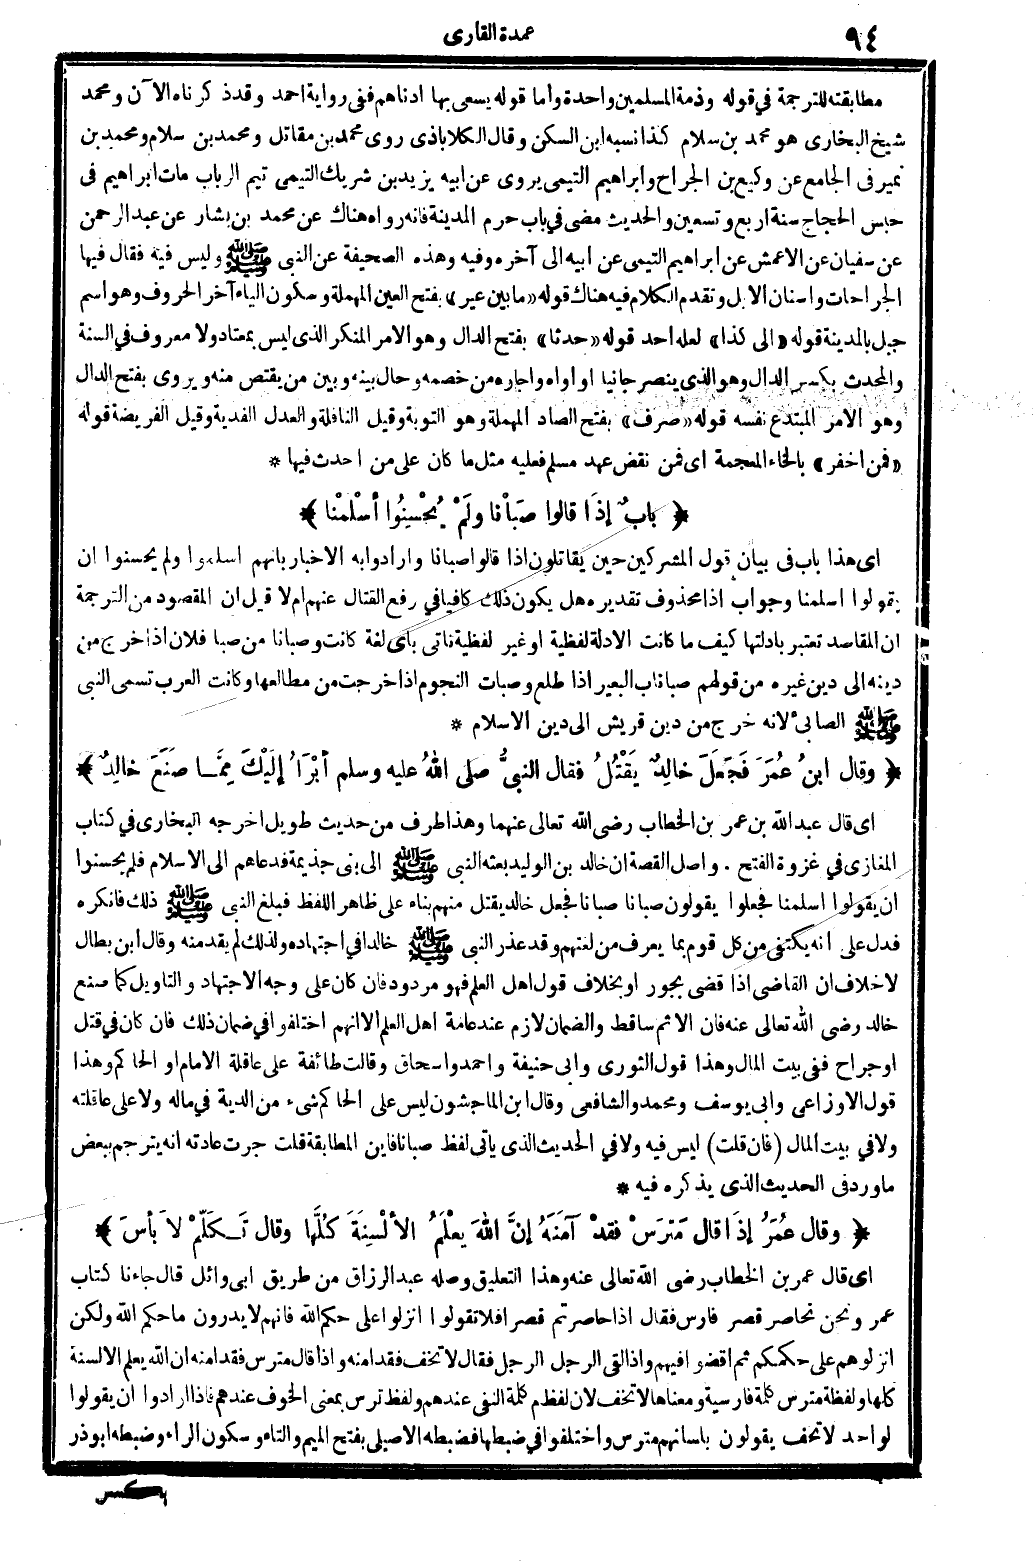 ٩٤
عمدة القارى
مطابقته للترجمة في قوله وذمة المسلمين واحدة وأما قوله يسعى بها ادناهم ففى رواية احمد وقد ذكرناه الآن ومحمد
شيخ البخارى هو محمد بن سلام كذا نسبه ابن السكن وقال الكلاباذى روى محمد بن مقاتل ومحمد بن سلام ومحمد بن
نمير فى الجامع عن وكيع بن الجراح وابراهيم التيمى يروى عن ابيه يزيد بن شريك التيمى تيم الرباب مات ابراهيم فى
حبس الحجاج سنة اربع وتسعين والحديث مضى في باب حرم المدينة فانه رواه هناك عن محمد بن بشار عن عبد الرحمن
عن سفيان عن الاعمش عن ابراهيم التيمى عن ابيه الى آخره وفيه وهذه الصحيفة عن النبى ﷺ وليس فية فقال فيها
الجراحات واسنان الابل وتقدم الكلام فيه هناك قوله «ما بين عير» بفتح العين المهملة وسكون الياء آخر الحروف وهو اسم
جبل بالمدينة قوله «الى كذا» لعله احد قوله «حدثا» بفتح الدال وهو الامر المنكر الذى ليس بمعتاد ولا معروف في السنة
والمحدث بكسر الدال وهو الذى ينصر جانيا او اواه واجاره من خصمه وحال بينه وبين من يقتص منه ويروى بفتح الدال
وهو الامر المبتدع نفسه قوله «صرف» بفتح الصاد المهملة وهو التوبة وقيل النافلة والعدل الفدية وقيل الفريضة قوله
«فمن اخفر» بالخاء المعجمة اى فمن نقض عهد مسلم فعليه مثل ما كان على من احدث فيها *
﴿ بابٌ إذَا قالوا صَبأْنا ولَمْ يُحْسِنُوا أسْلَمْنا ﴾
اى هذا باب فى بيان قول المشركين حين يقاتلون اذا قالوا صبانا وارادوا به الاخبار بانهم اسلموا ولم يحسنوا ان
يقولوا اسلمنا وجواب اذا محذوف تقديره هل يكون ذلك كافيا في رفع القتال عنهم ام لا قيل ان المقصود من الترجمة
ان المقاصد تعتبر بادلتها كيف ما كانت الادلة لفظية او غير لفظية تاتى باى لغة كانت وصبانا من صبا فلان اذا خرج من
دينه الى دين غيره من قولهم صبا ناب البعير اذا طلع وصبات النجوم اذا خرجت من مطالعها وكانت العرب تسمى النبى
ﷺ الصابئ لانه خرج من دين قريش الى دين الاسلام *
﴿ وقال ابنُ عُمَرَ فَجَعَلَ خالِدٌ يَقْتُلُ فقال النبىُّ صلى اللهُ عليه وسلم أبْرَأُ إلَيْكَ مِمَّا صنَعَ خالِدٌ ﴾
اى قال عبد الله بن عمر بن الخطاب رضى الله تعالى عنهما وهذا طرف من حديث طويل اخرجه البخارى في كتاب
المغازى في غزوة الفتح . واصل القصة ان خالد بن الوليد بعثه النبى ﷺ الى بنى جذيمة فدعاهم الى الاسلام فلم يحسنوا
ان يقولوا اسلمنا فجعلوا يقولون صبانا صبانا فجعل خالد يقتل منهم بناء على ظاهر اللفظ فبلغ النبى ﷺ ذلك فانكره
فدل على انه يكتفى من كل قوم بما يعرف من لغتهم وقد عذر النبى ﷺ خالدا في اجتهاده ولذلك لم يقد منه وقال ابن بطال
لاخلاف ان القاضى اذا قضى بجور او بخلاف قول اهل العلم فهو مردود فان كان على وجه الاجتهاد والتاويل كما صنع
خالد رضى الله تعالى عنه فان الاثم ساقط والضمان لازم عند عامة اهل العلم الا انهم اختلفوا في ضمان ذلك فان كان في قتل
او جراح ففى بيت المال وهذا قول الثورى وابى حنيفة واحمد واسحاق وقالت طائفة على عاقلة الامام او الحاكم وهذا
قول الاوزاعى وابى يوسف ومحمد والشافعى وقال ابن الماجشون ليس على الحاكم شىء من الدية في ماله ولا على عاقلته
ولا في بيت المال (فان قلت) ليس فيه ولا في الحديث الذى ياتى لفظ صبانا فاين المطابقة قلت جرت عادته انه يترجم ببعض
ما ورد فى الحديث الذى يذكره فيه *
﴿ وقال عُمَرُ إذَا قال مَتَرسْ فقدْ آمَنَهُ إنَّ اللهَ يعْلَمُ الألْسِنَةَ كُلَّها وقال تَكَلَّمْ لا بأسَ ﴾
اى قال عمر بن الخطاب رضى الله تعالى عنه وهذا التعليق وصله عبد الرزاق من طريق ابى وائل قال جاءنا كتاب
عمر ونحن نحاصر قصر فارس فقال اذا حاصرتم قصرا فلا تقولوا انزلوا على حكم الله فانهم لا يدرون ما حكم الله ولكن
انزلوهم على حكمكم ثم اقضوا فيهم واذا لقى الرجل الرجل فقال لا تخف فقد امنه واذا قال مترس فقد امنه ان الله يعلم الالسنة
كلها ولفظة مترس كلمة فارسية ومعناها لا تخف لان لفظ م كلمة النفى عندهم ولفظ ترس بمعنى الخوف عندهم فاذا ارادوا ان يقولوا
لواحد لا تخف يقولون بلسانهم مترس واختلفوا في ضبطها فضبطه الاصيلى بفتح الميم والتاء وسكون الراء وضبطه ابو ذر
بكسر